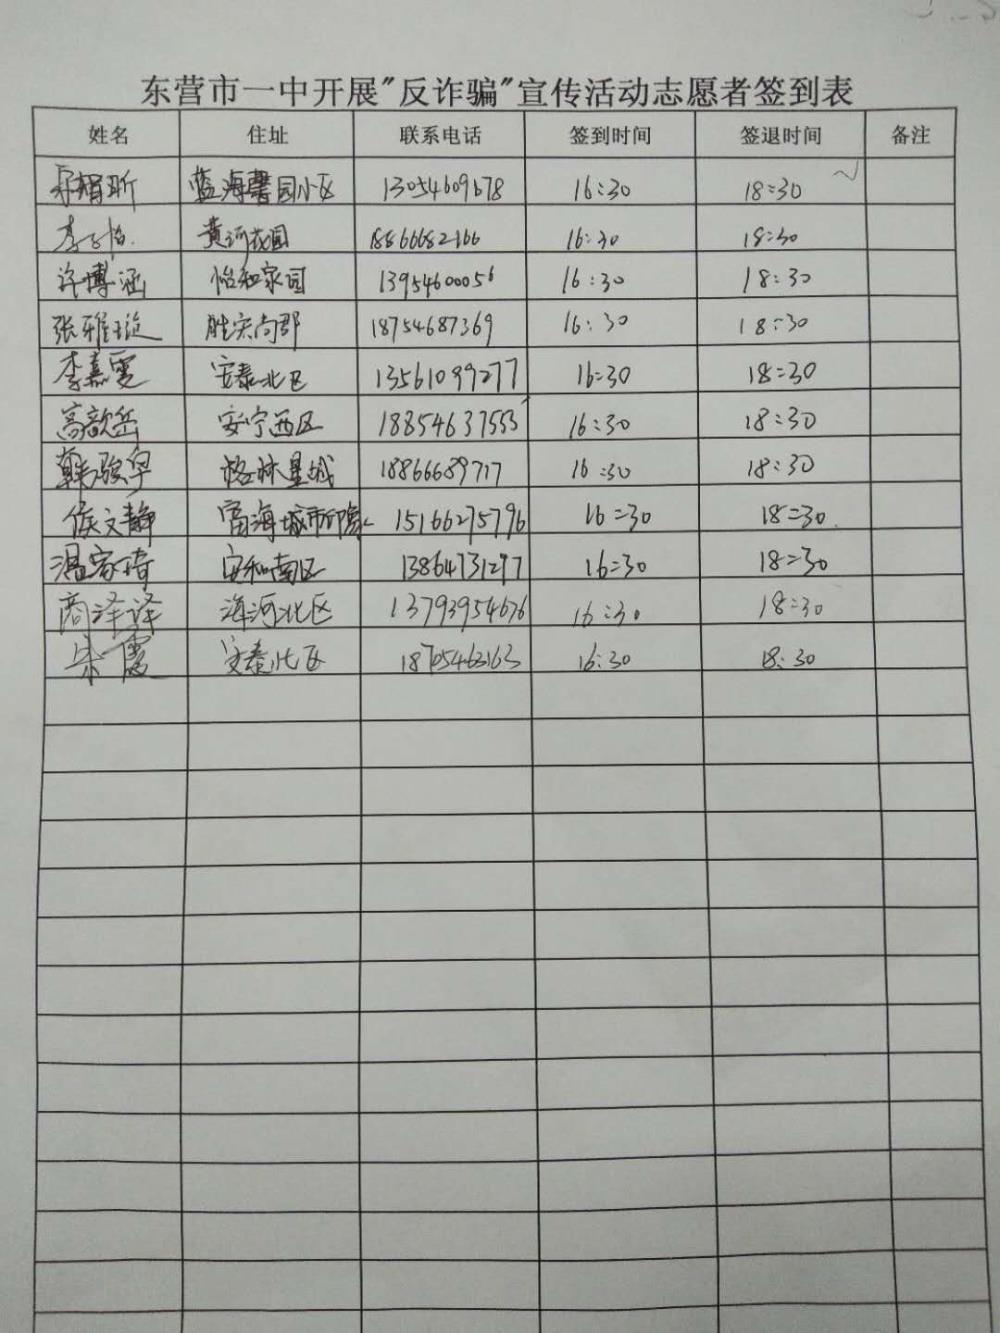 东营市一中开展"反诈骗"宣传活动志愿者签到表
姓名 住址 联系电话 签到时间 签退时间 备注
蓝海馨园小区 13054609678 16:30 18:30
李子怡 黄河花园 18866682166 16:30 18:30
许博涵 怡和家园 13954600056 16:30 18:30
张雅璇 胜宏尚郡 18754687369 16:30 18:30
李嘉雯 安泰北区 13561099277 16:30 18:30
高歆岳 安宁西区 18854637555 16:30 18:30
韩骏宇 格林星城 18866689717 16:30 18:30
侯文静 富海城市印象 15166275796 16:30 18:30
温家琦 安和南区 13864731297 16:30 18:30
商泽译 海河北区 13793954676 16:30 18:30
安泰北区 18705463163 16:30 18:30